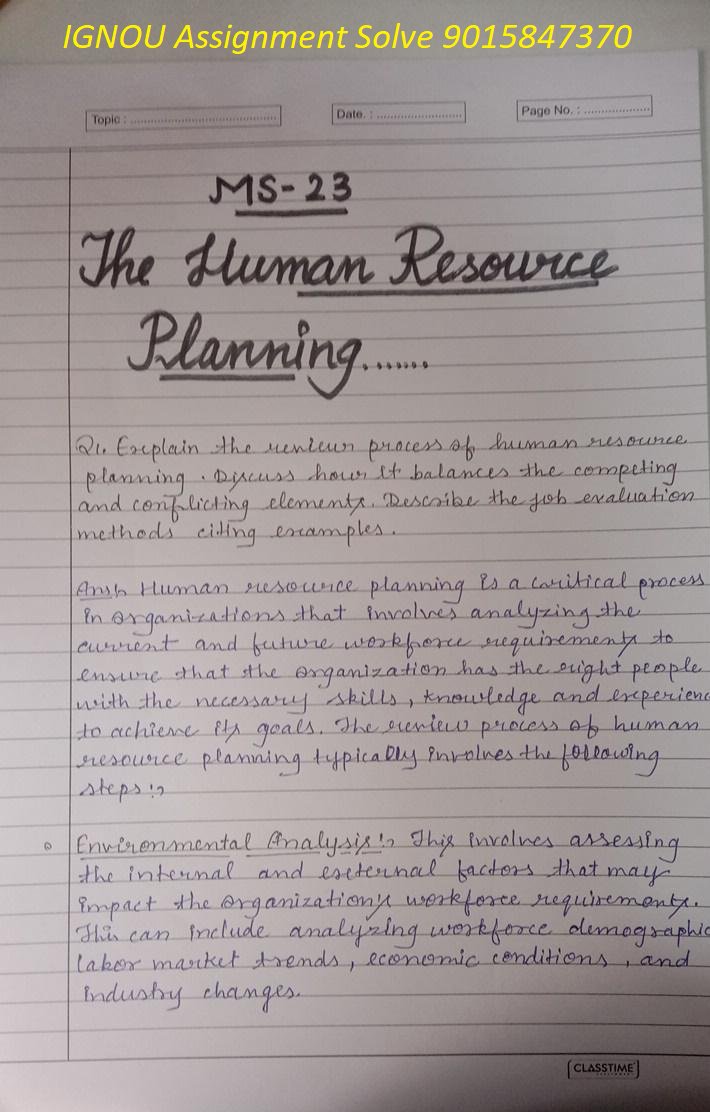 IGNOU Assignment Solve 9015847370
Topic : ............................................
Date. : .........................
Page No. : ...................
MS-23
The Human Resource
Planning.......
Q1. Explain the review process of human resource
planning. Discuss how it balances the competing
and conflicting elements. Describe the job evaluation
methods citing examples.
Ans:- Human resource planning is a critical process
in organizations that involves analyzing the
current and future workforce requirements to
ensure that the organization has the right people
with the necessary skills, knowledge and experienc
to achieve its goals. The review process of human
resource planning typically involves the following
steps:-
Environmental Analysis:- This involves assessing
the internal and external factors that may
impact the organization's workforce requirements.
This can include analyzing workforce demographic
labor market trends, economic conditions, and
industry changes.
CLASSTIME